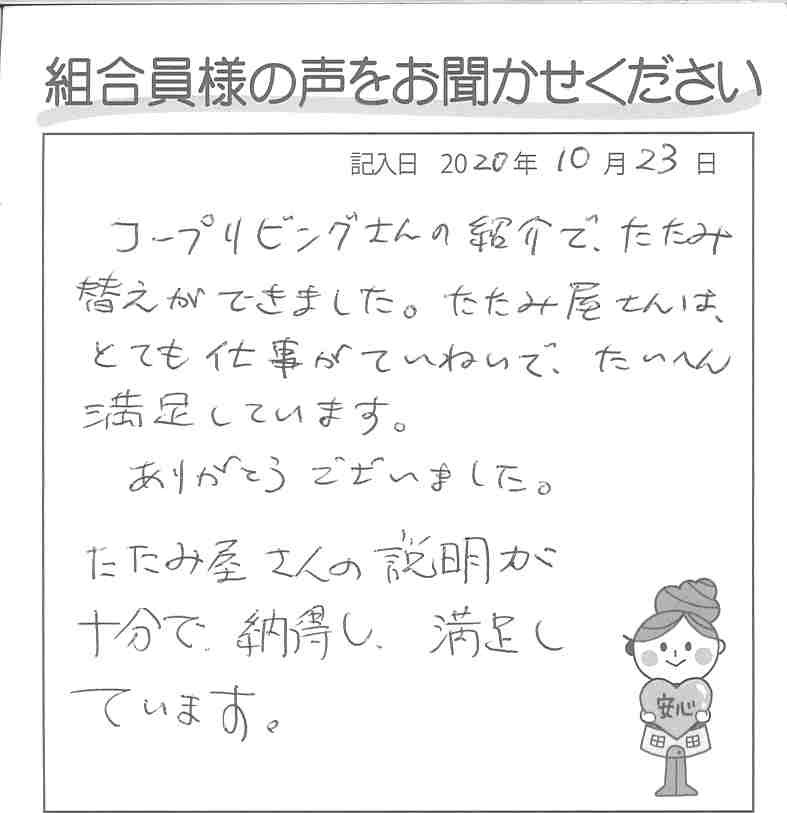 組合員様の声をお聞かせください
記入日 2020年 10月23日
コープリビングさんの紹介で、たたみ
替えができました。たたみ屋さんは、
とても仕事がていねいで、たいへん
満足しています。
ありがとうございました。
たたみ屋さんの説明が
十分で、納得し、満足し
ています。
安心